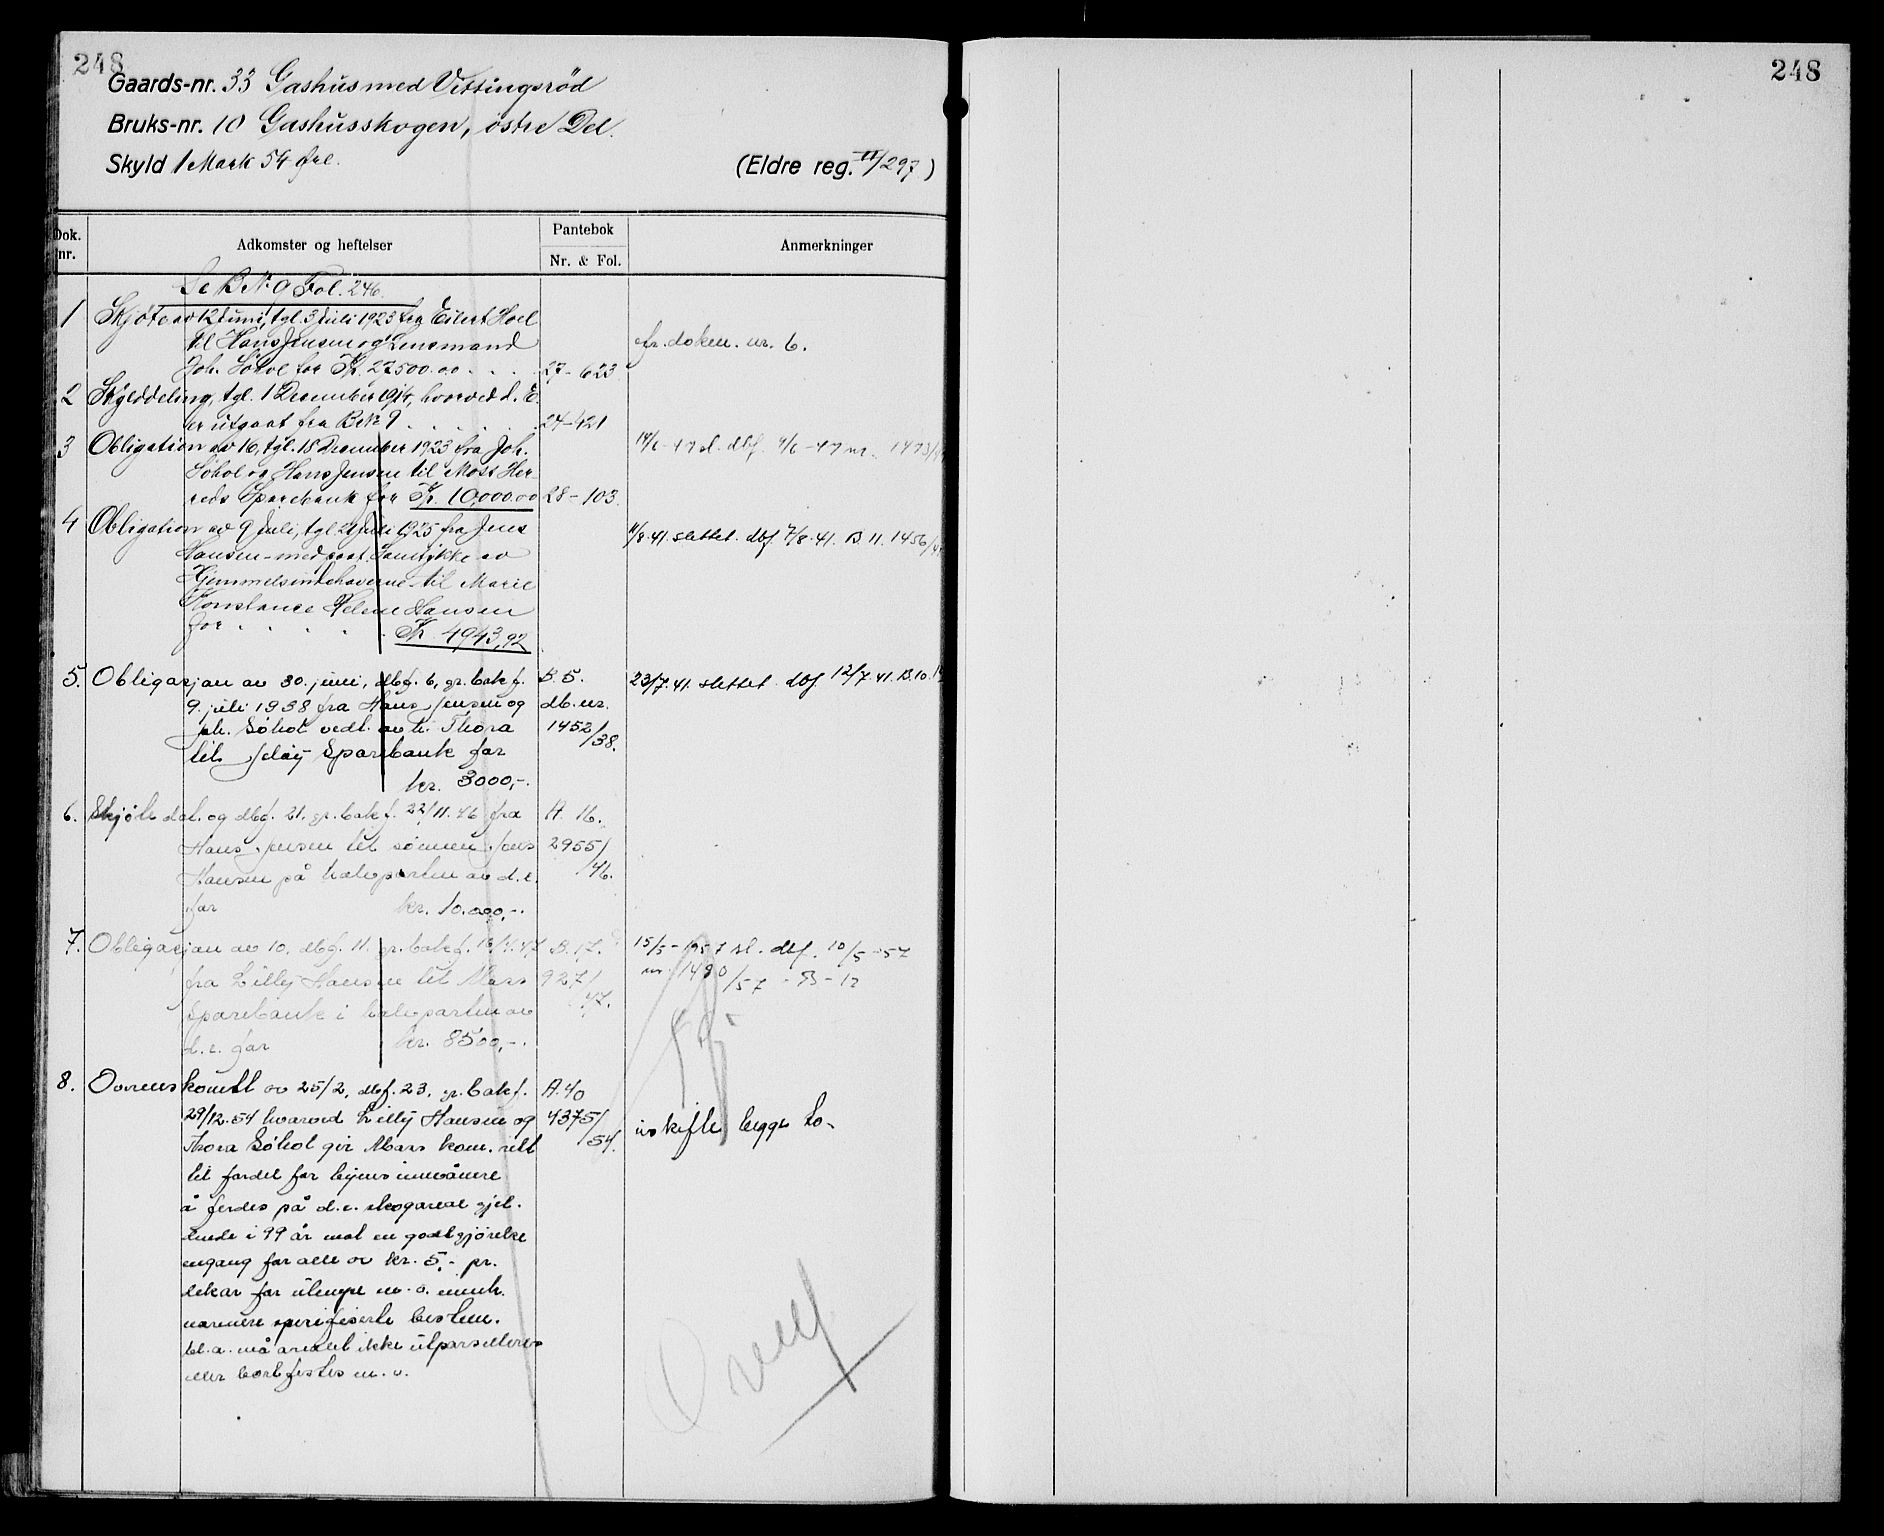 248
248
Gaards-nr. 33 Gashus med Vittingsröd
Bruks-nr. 10 Gashusskogen, östre Del.
Skyld 1 Mark 54 Øre.
(Eldre reg. II/297)
Dok. nr.
Adkomster og heftelser
Pantebok
Nr. & Fol.
Anmerkninger
Se B.Nr 9 Fol. 246
1 Skjöte av 12 Juni, tgl. 3 Juli 1923 fra Eilert Hoel
til Hans Jensen og Lensmand
Joh. Söhol for Kr. 22500.00 . . . 27-623.
cfr. dokum. nr. 6.
2 Skylddeling, tgl. 1 December 1914, hvorved d. E.
er utgaat fra Bnr 9 . . . . . 24-421
3 Obligation av 16, tgl. 18 December 1923 fra Joh.
Söhol og Hans Jensen til Moss Her-
reds Sparebank for Kr. 10,000.00 28-103.
14/6-47 sl. dbf. 9/6-47 nr. 1473/47
4 Obligation av 9 Juli, tgl 21 Juli 1925 fra Jens
Hansen - med paat. Samtykke av
Hjemmelsindehaverne - til Marie
Konstance Helene Hansen
for . . . . . Kr. 4943,92
11/8.41. slettet. dbf 7/8.41. B 11. 1456/41
5. Obligasjon av 30. juni, dbf. 6, gr. bok f.
9. juli 1938 fra Hans Jensen og
Joh. Söhol vedt. av h. Thora
til Jeløy Sparebank for
kr. 3000,-.
B. 5.
db. nr.
1452/38.
23/7.41. slettet. dbf 12/7.41. B.10.
6. Skjöte dat. og dbf. 21. gr. bok f. 22/11.46 fra
Hans Jensen til sønnen Jens
Hansen på halvparten av d.e.
for kr. 10.000,-.
A. 16.
2955/46.
7. Obligasjon av 10, dbf. 11. gr. bok f. 16/4.47
fra Lilly Hansen til Moss
Sparebank i halvparten av
d.e. for kr. 8500,-.
B. 17.
927/47.
15/5-1957 sl. dbf. 10/5-57
nr. 1490/57 - B - 12
8. Overenskomst av 25/2, dbf. 23, gr. bok f.
29/12.54 hvorved Lilly Hansen og
Thora Söhol gir Moss kom. rett
til fordel for byens innvånere
å ferdes på d.e. skogareal gjel.
ende i 99 år mot en godtgjørelse
engang for alle av kr. 5,- pr.
dekar for ulempe m.v. mmh.
nærmere spesifiserte bestem.
bl.a. må arealet ikke utparselleres
eller bortfestes m.v.
A. 40
4375/54.
uskifte begge to.
Overf